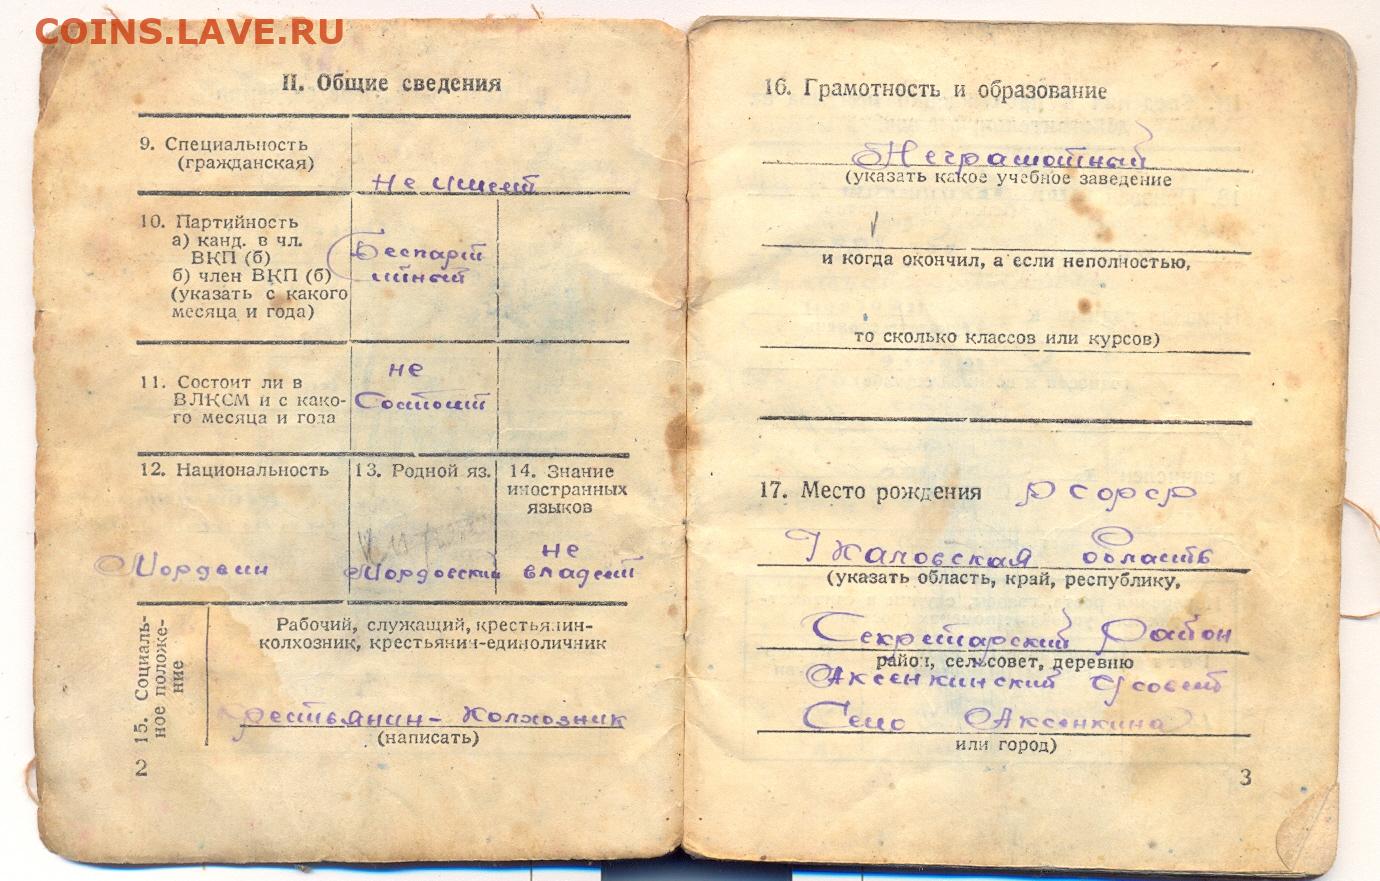 COINS.LAVE.RU
II. Общие сведения
9. Специальность
(гражданская)
Не имеет
10. Партийность
а) канд. в чл.
ВКП (б)
б) член ВКП (б)
(указать с какого
месяца и года)
Беспарт
ийный
11. Состоит ли в
ВЛКСМ и с како-
го месяца и года
не
Состоит
12. Национальность
Мордвин
13. Родной яз.
Мордовский
14. Знание
иностранных
языков
не
владеет
15. Социаль-
ное положе-
ние
Рабочий, служащий, крестьянин-
колхозник, крестьянин-единоличник
Крестьянин-Колхозник
(написать)
2
16. Грамотность и образование
Неграмотный
(указать какое учебное заведение
и когда окончил, а если неполностью,
то сколько классов или курсов)
17. Место рождения РСФСР
Чкаловская область
(указать область, край, республику,
Секретарский Район
район, сельсовет, деревню
Аксенкинский с/совет
Село Аксенкина
или город)
3